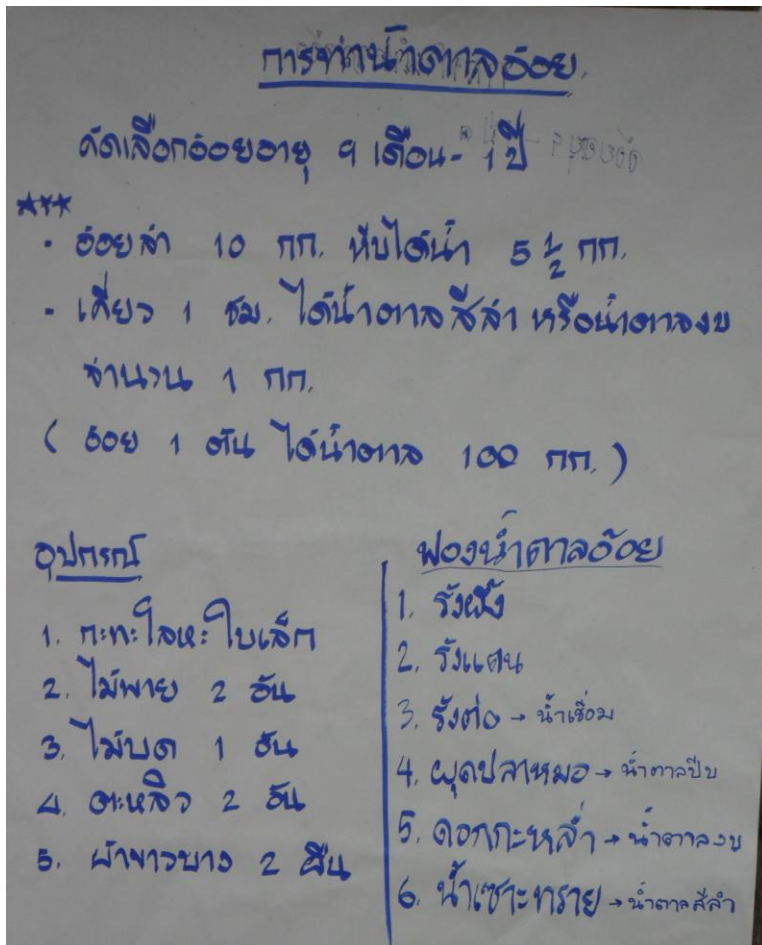 การทำน้ำตาลอ้อย
คัดเลือกอ้อยอายุ 9 เดือน - 1 ปี
***
- อ้อยลำ 10 กก. หีบได้น้ำ 5 ½ กก.
- เคี่ยว 1 ชม. ได้น้ำตาลสีลำ หรือน้ำตาลงบ
จำนวน 1 กก.
( อ้อย 1 ตัน ได้น้ำตาล 100 กก. )
อุปกรณ์
1. กะทะโลหะใบเล็ก
2. ไม้พาย 2 อัน
3. ไม้บด 1 อัน
4. ตะหลิว 2 อัน
5. ผ้าขาวบาง 2 ผืน
ฟองน้ำตาลอ้อย
1. รังผึ้ง
2. รังแตน
3. รังต่อ → น้ำเชื่อม
4. ผุดปลาหมอ → น้ำตาลปีบ
5. ดอกกะหล่ำ → น้ำตาลงบ
6. น้ำเซาะทราย → น้ำตาลสีลำ